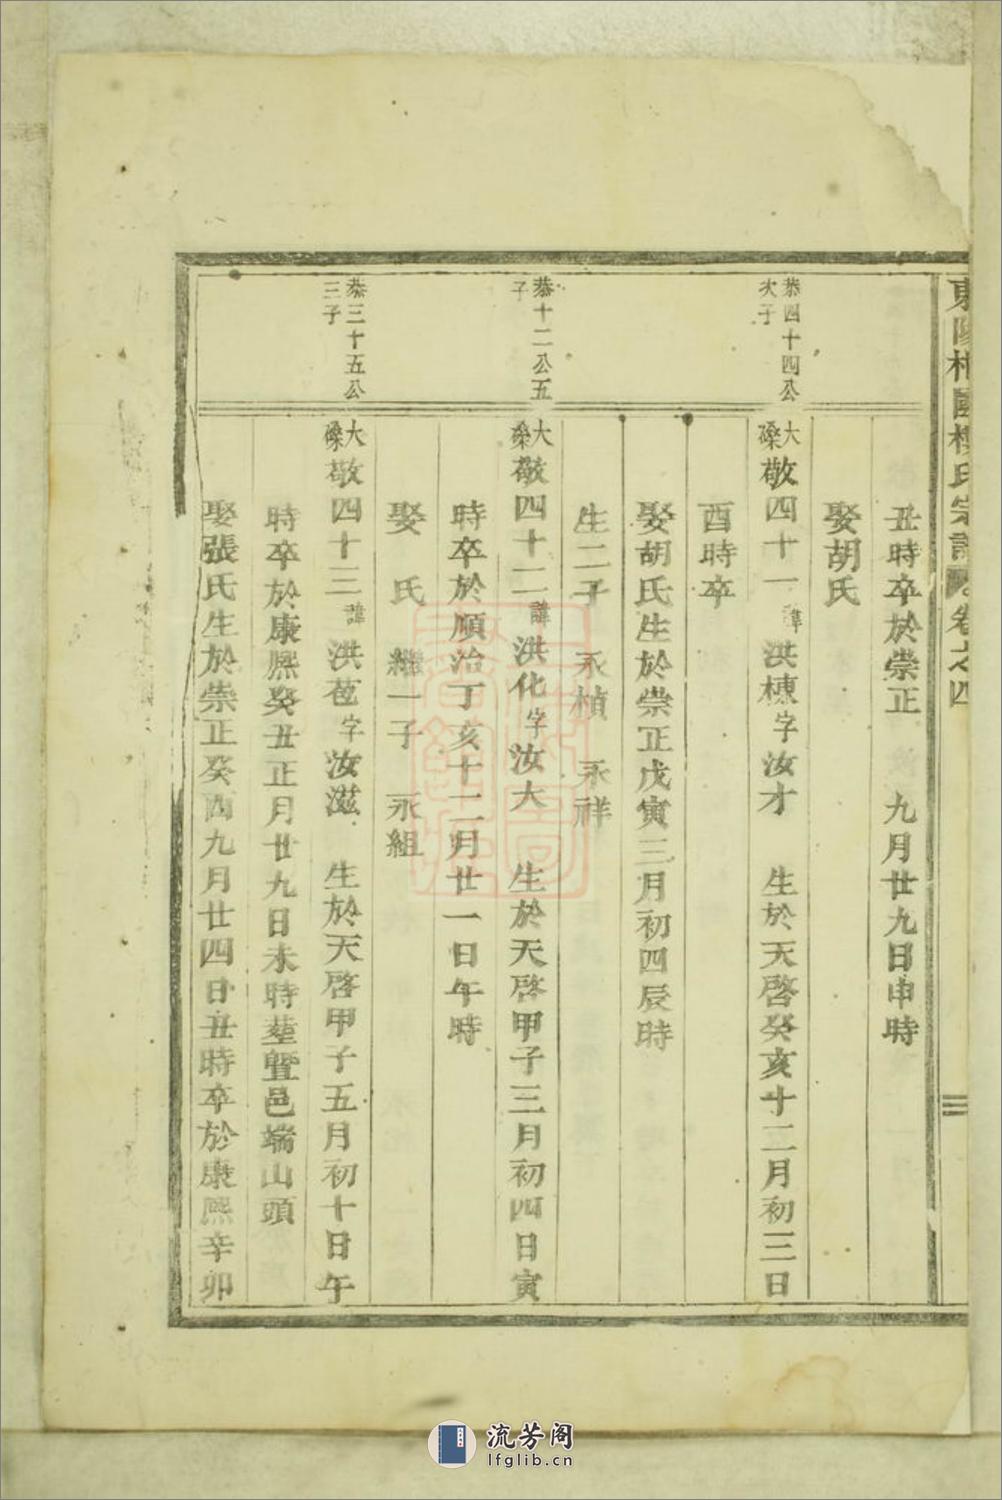 宗譜
卷之四
丑時卒於崇正 九月廿九日申時
娶胡氏
恭四十四公次子
大磉敬四十一諱洪棟字汝才 生於天啓癸亥十二月初三日
酉時卒
娶胡氏生於崇正戊寅三月初四辰時
生二子 永楨 永祥
恭十二公五子
大磉敬四十二諱洪化字汝大 生於天啓甲子三月初四日寅
時卒於順治丁亥十二月廿一日午時
娶 氏 繼一子 永組
恭三十五公三子
大磉敬四十三諱洪苞字汝滋 生於天啓甲子五月初十日午
時卒於康熙癸丑正月廿九日未時塟曁邑端山頭
娶張氏生於崇正癸酉九月廿四日丑時卒於康熙辛卯
流芳阁
lfglib.cn